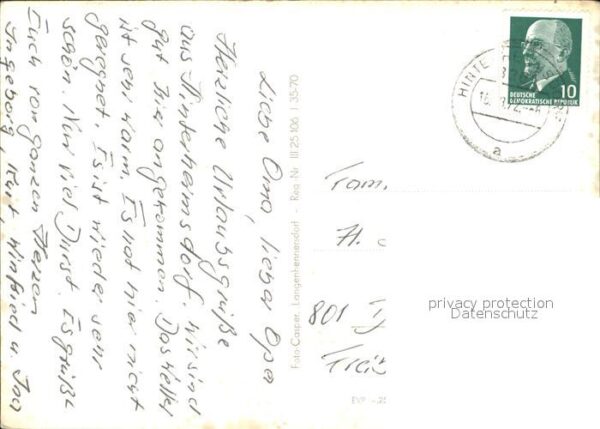 Liebe Oma, lieber Opa
Herzliche Urlaubsgrüße
aus Hinterhermsdorf. Wir sind
gut hier angekommen. Das Wetter
ist sehr warm. Es hat hier nicht
geregnet. Es ist wieder sehr
schön. Nur viel Durst. Es grüßt
Euch von ganzen Herzen
Ingeborg, Kurt, Winfried u. Ina
Foto Casper, Langenhennersdorf - Reg. Nr. III 25 106 J 35-70
HINTE
a
10
DEUTSCHE
DEMOKRATISCHE REPUBLIK
Fam.
A.
801
privacy protection
Datenschutz
EVP